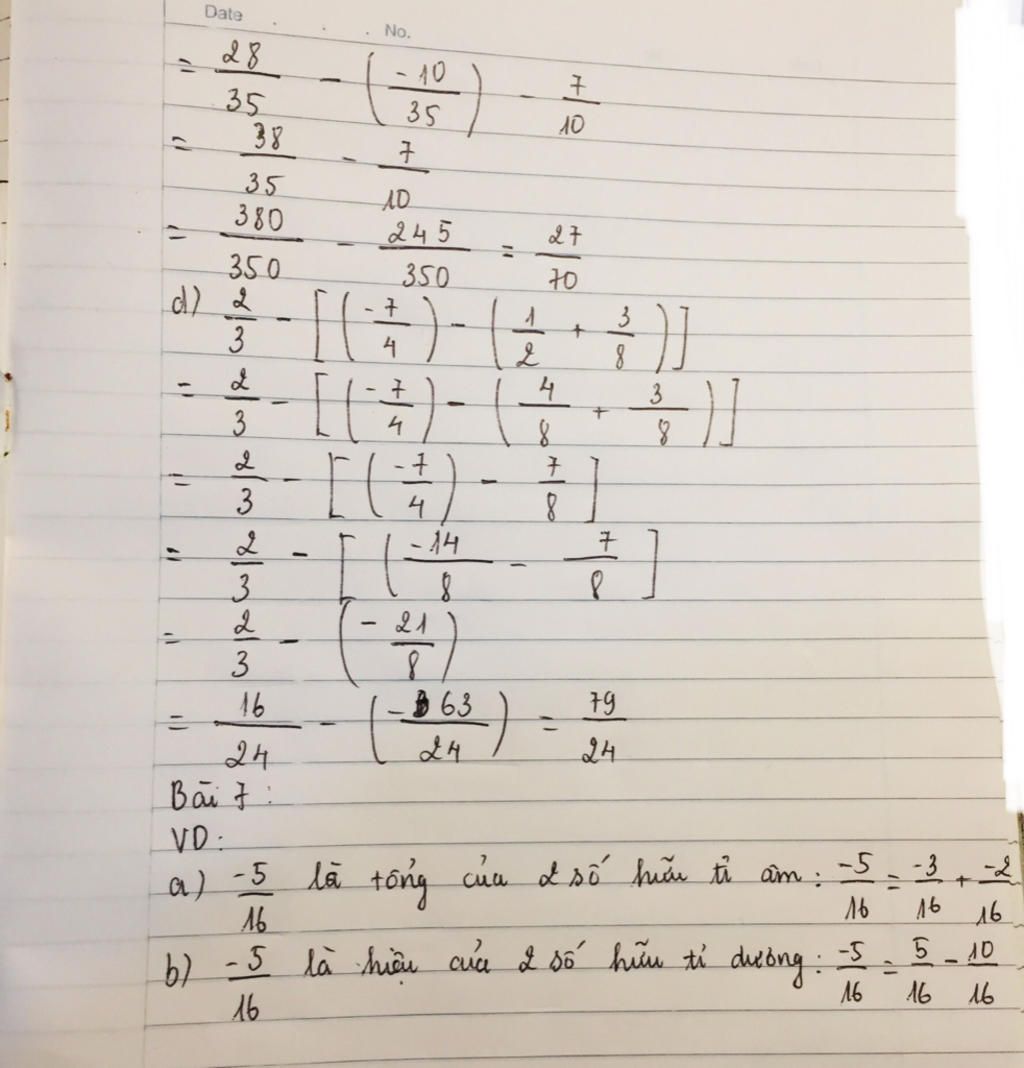 Date . . . No.
= 28/35 - (-10/35) - 7/10
= 38/35 - 7/10
= 380/350 - 245/350 = 27/70
d) 2/3 - [(-7/4) - (1/2 + 3/8)]
= 2/3 - [(-7/4) - (4/8 + 3/8)]
= 2/3 - [(-7/4) - 7/8]
= 2/3 - [(-14/8 - 7/8]
= 2/3 - (-21/8)
= 16/24 - (-63/24) = 79/24
Bài 7 :
VD :
a) -5/16 là tổng của 2 số hữu tỉ âm : -5/16 = -3/16 + -2/16
b) -5/16 là hiệu của 2 số hữu tỉ dương : -5/16 = 5/16 - 10/16